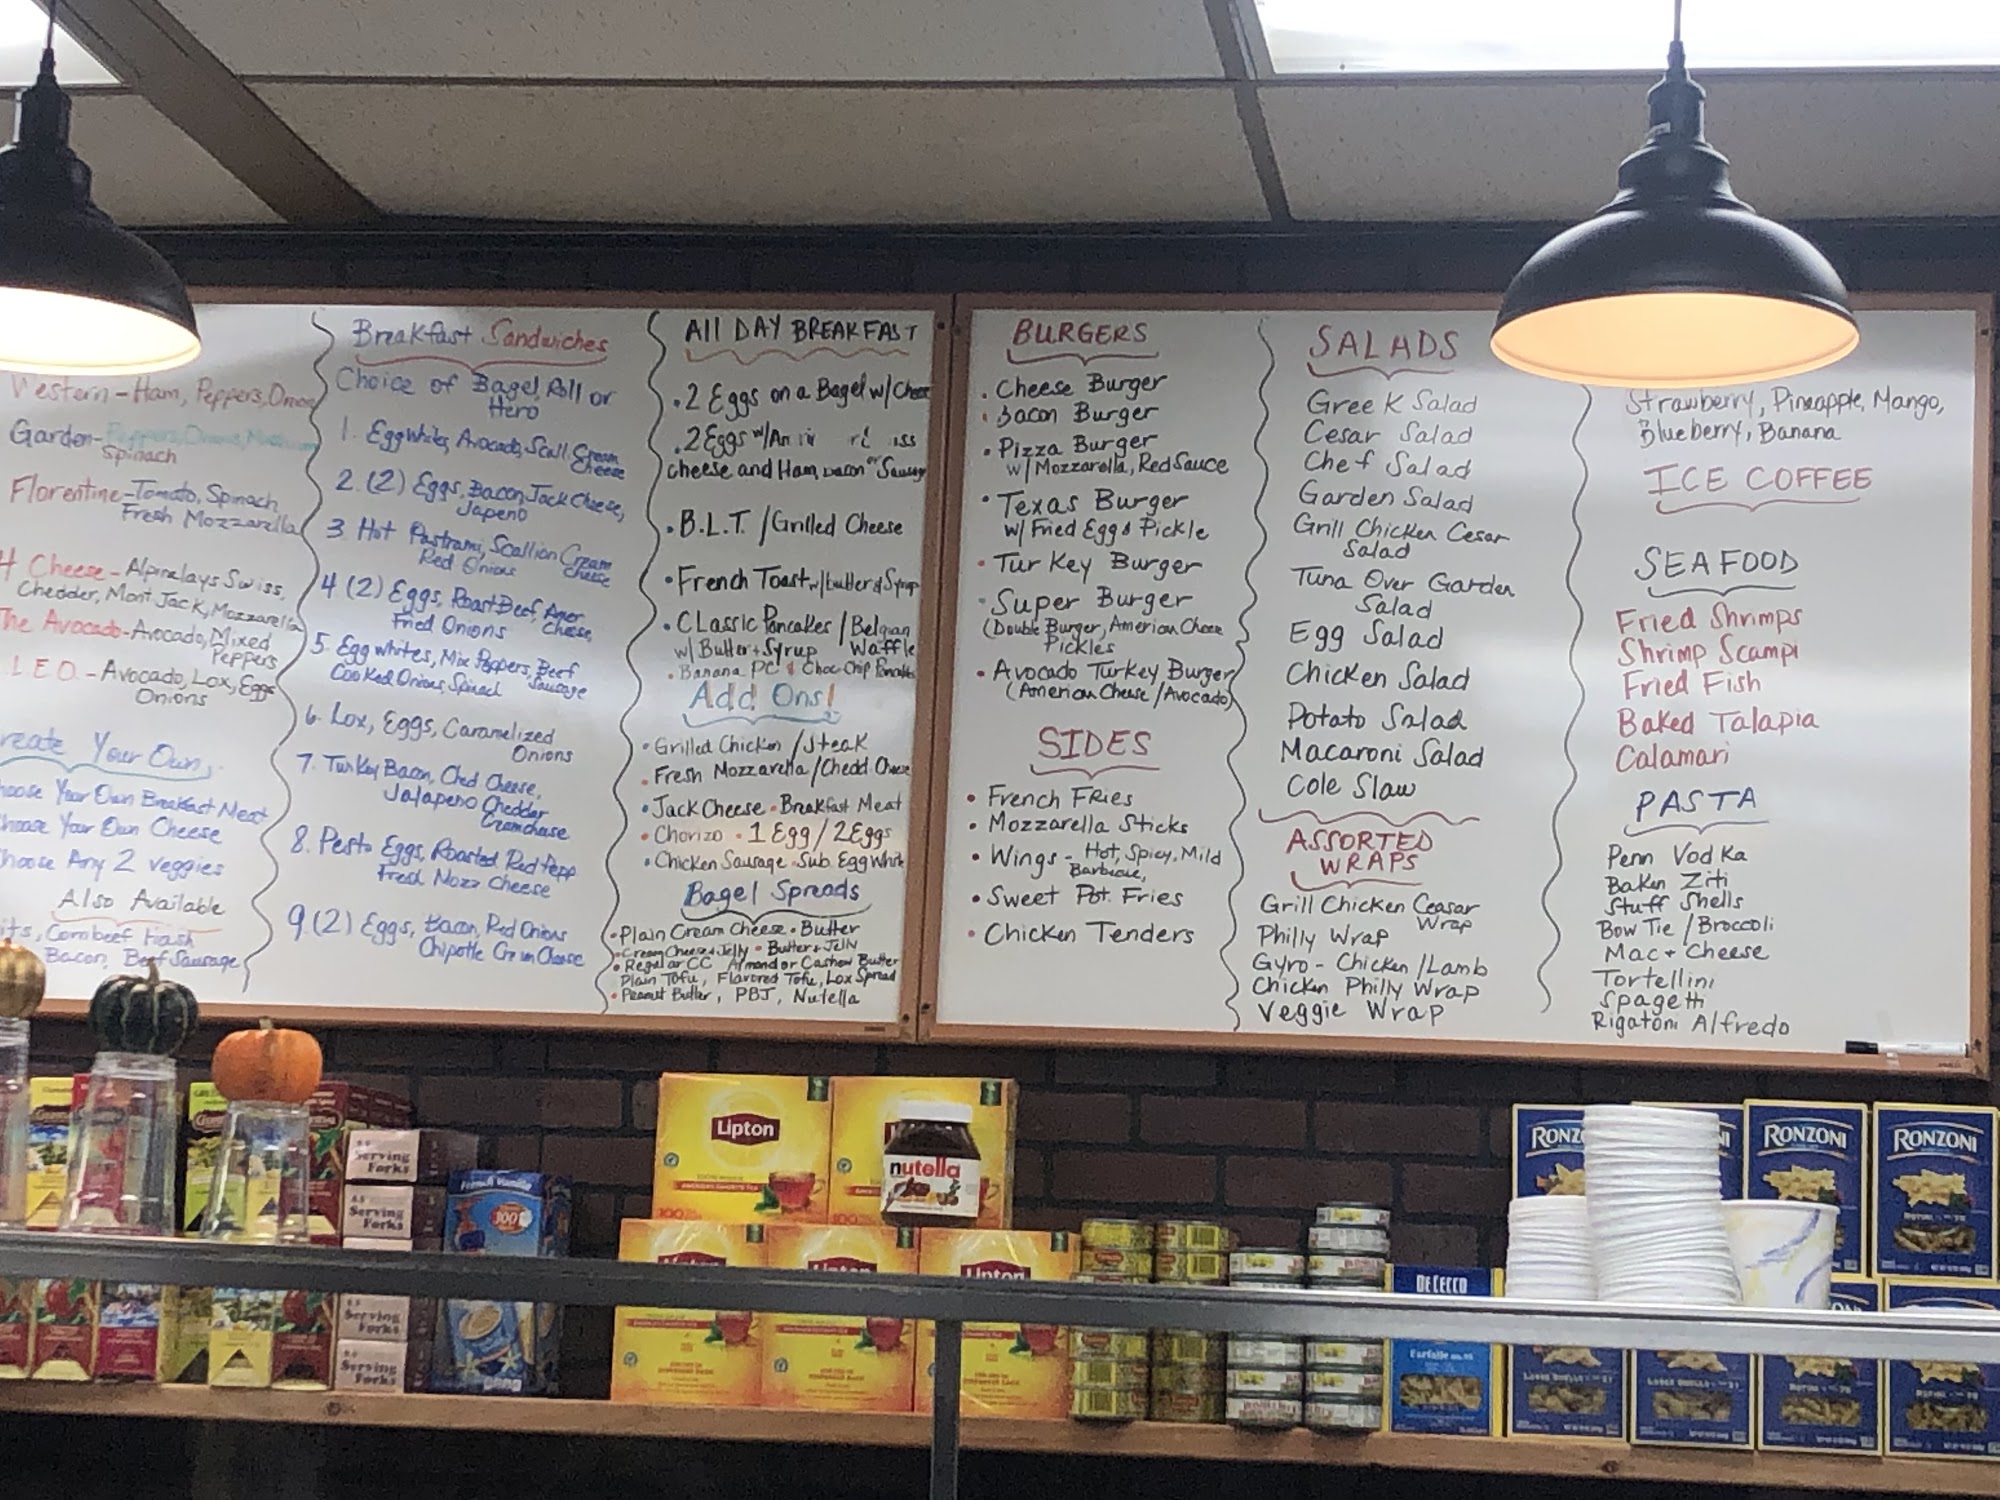 Western - Ham, Peppers, Onions
Garden - Peppers, Onions, Mushroom
Spinach
Florentine - Tomato, Spinach
Fresh Mozzarella
4 Cheese - Alpinelays Swiss,
Chedder, Mont Jack, Mozzarella
The Avocado - Avocado, Mixed
Peppers
L E O - Avocado, Lox, Eggs
Onions
reate Your Own
hoose Your Own Breakfast Meat
hoose Your Own Cheese
hoose Any 2 veggies
Also Available
its, Cornbeef Hash
Bacon, Beef Sausage
Breakfast Sandwiches
Choice of Bagel, Roll or
Hero
1. Egg whites, Avocado, Scall. Cream
Cheese
2. (2) Eggs, Bacon, Jack Cheese,
Japeno
3. Hot Pastrami, Scallion Cream
Red Onions Cheese
4 (2) Eggs, Roast Beef, Amer
Fried Onions Cheese,
5. Egg whites, Mix Peppers, Beef
Cooked Onions, Spinach Sausage
6. Lox, Eggs, Caramelized
Onions
7. Turkey Bacon, Ched Cheese,
Jalapeno Cheddar
8. Pesto Eggs, Roasted Red Pepp
Fresh Mozz Cheese
9 (2) Eggs, Bacon, Red Onions
Chipotle Cream Cheese
All DAY BREAKFAST
. 2 Eggs on a Bagel w/ Cheese
. 2 Eggs w/
cheese and Ham, bacon or Sausag
• B.L.T. / Grilled Cheese
• French Toast w/ butter & Syrup
• Classic Pancakes / Belgian
w/ Butter + Syrup Waffle
• Banana PC & Choc Chip Pancakes
Add Ons!
• Grilled Chicken / Steak
• Fresh Mozzarella / Chedd Cheese
• Jack Cheese • Breakfast Meat
• Chorizo • 1 Egg / 2 Eggs
• Chicken Sausage • Sub Egg White
Bagel Spreads
• Plain Cream Cheese • Butter
• Cream Cheese & Jelly • Butter + Jelly
• Regular CC Almond or Cashow Butter
Plain Tofu, Flavored Tofu, Lox Spread
• Peanut Butter, PBJ, Nutella
BURGERS
. Cheese Burger
• Bacon Burger
• Pizza Burger
w/ Mozzarella, Red Sauce
• Texas Burger
w/ Fried Egg & Pickle
• Turkey Burger
• Super Burger
(Double Burger, American Cheese
Pickles
• Avocado Turkey Burger
(American Cheese / Avocado)
SIDES
• French FRies
• Mozzarella Sticks
• Wings - Hot, Spicy, Mild
Barbicue,
• Sweet Pot. Fries
• Chicken Tenders
SALADS
Greek Salad
Cesar Salad
Chef Salad
Garden Salad
Grill Chicken Cesar
Salad
Tuna Over Garden
Salad
Egg Salad
Chicken Salad
Potato Salad
Macaroni Salad
Cole Slaw
ASSORTED
WRAPS
Grill Chicken Ceasar
Wrap
Philly Wrap
Gyro - Chicken / Lamb
Chicken Philly Wrap
Veggie Wrap
Strawberry, Pineapple, Mango,
Blueberry, Banana
ICE COFFEE
SEAFOOD
Fried Shrimps
Shrimp Scampi
Fried Fish
Baked Talapia
Calamari
PASTA
Penn Vodka
Baken Ziti
Stuff Shells
Bow Tie / Broccoli
Mac + Cheese
Tortellini
Spagetti
Rigatoni Alfredo
Lipton
nutella
Serving
Forks
Serving
Forks
Serving
Forks
Serving
Forks
French Vanilla
Lipton
Lipton
Lipton
DE CECCO
Farfalle
RONZONI
RONZONI
RONZONI